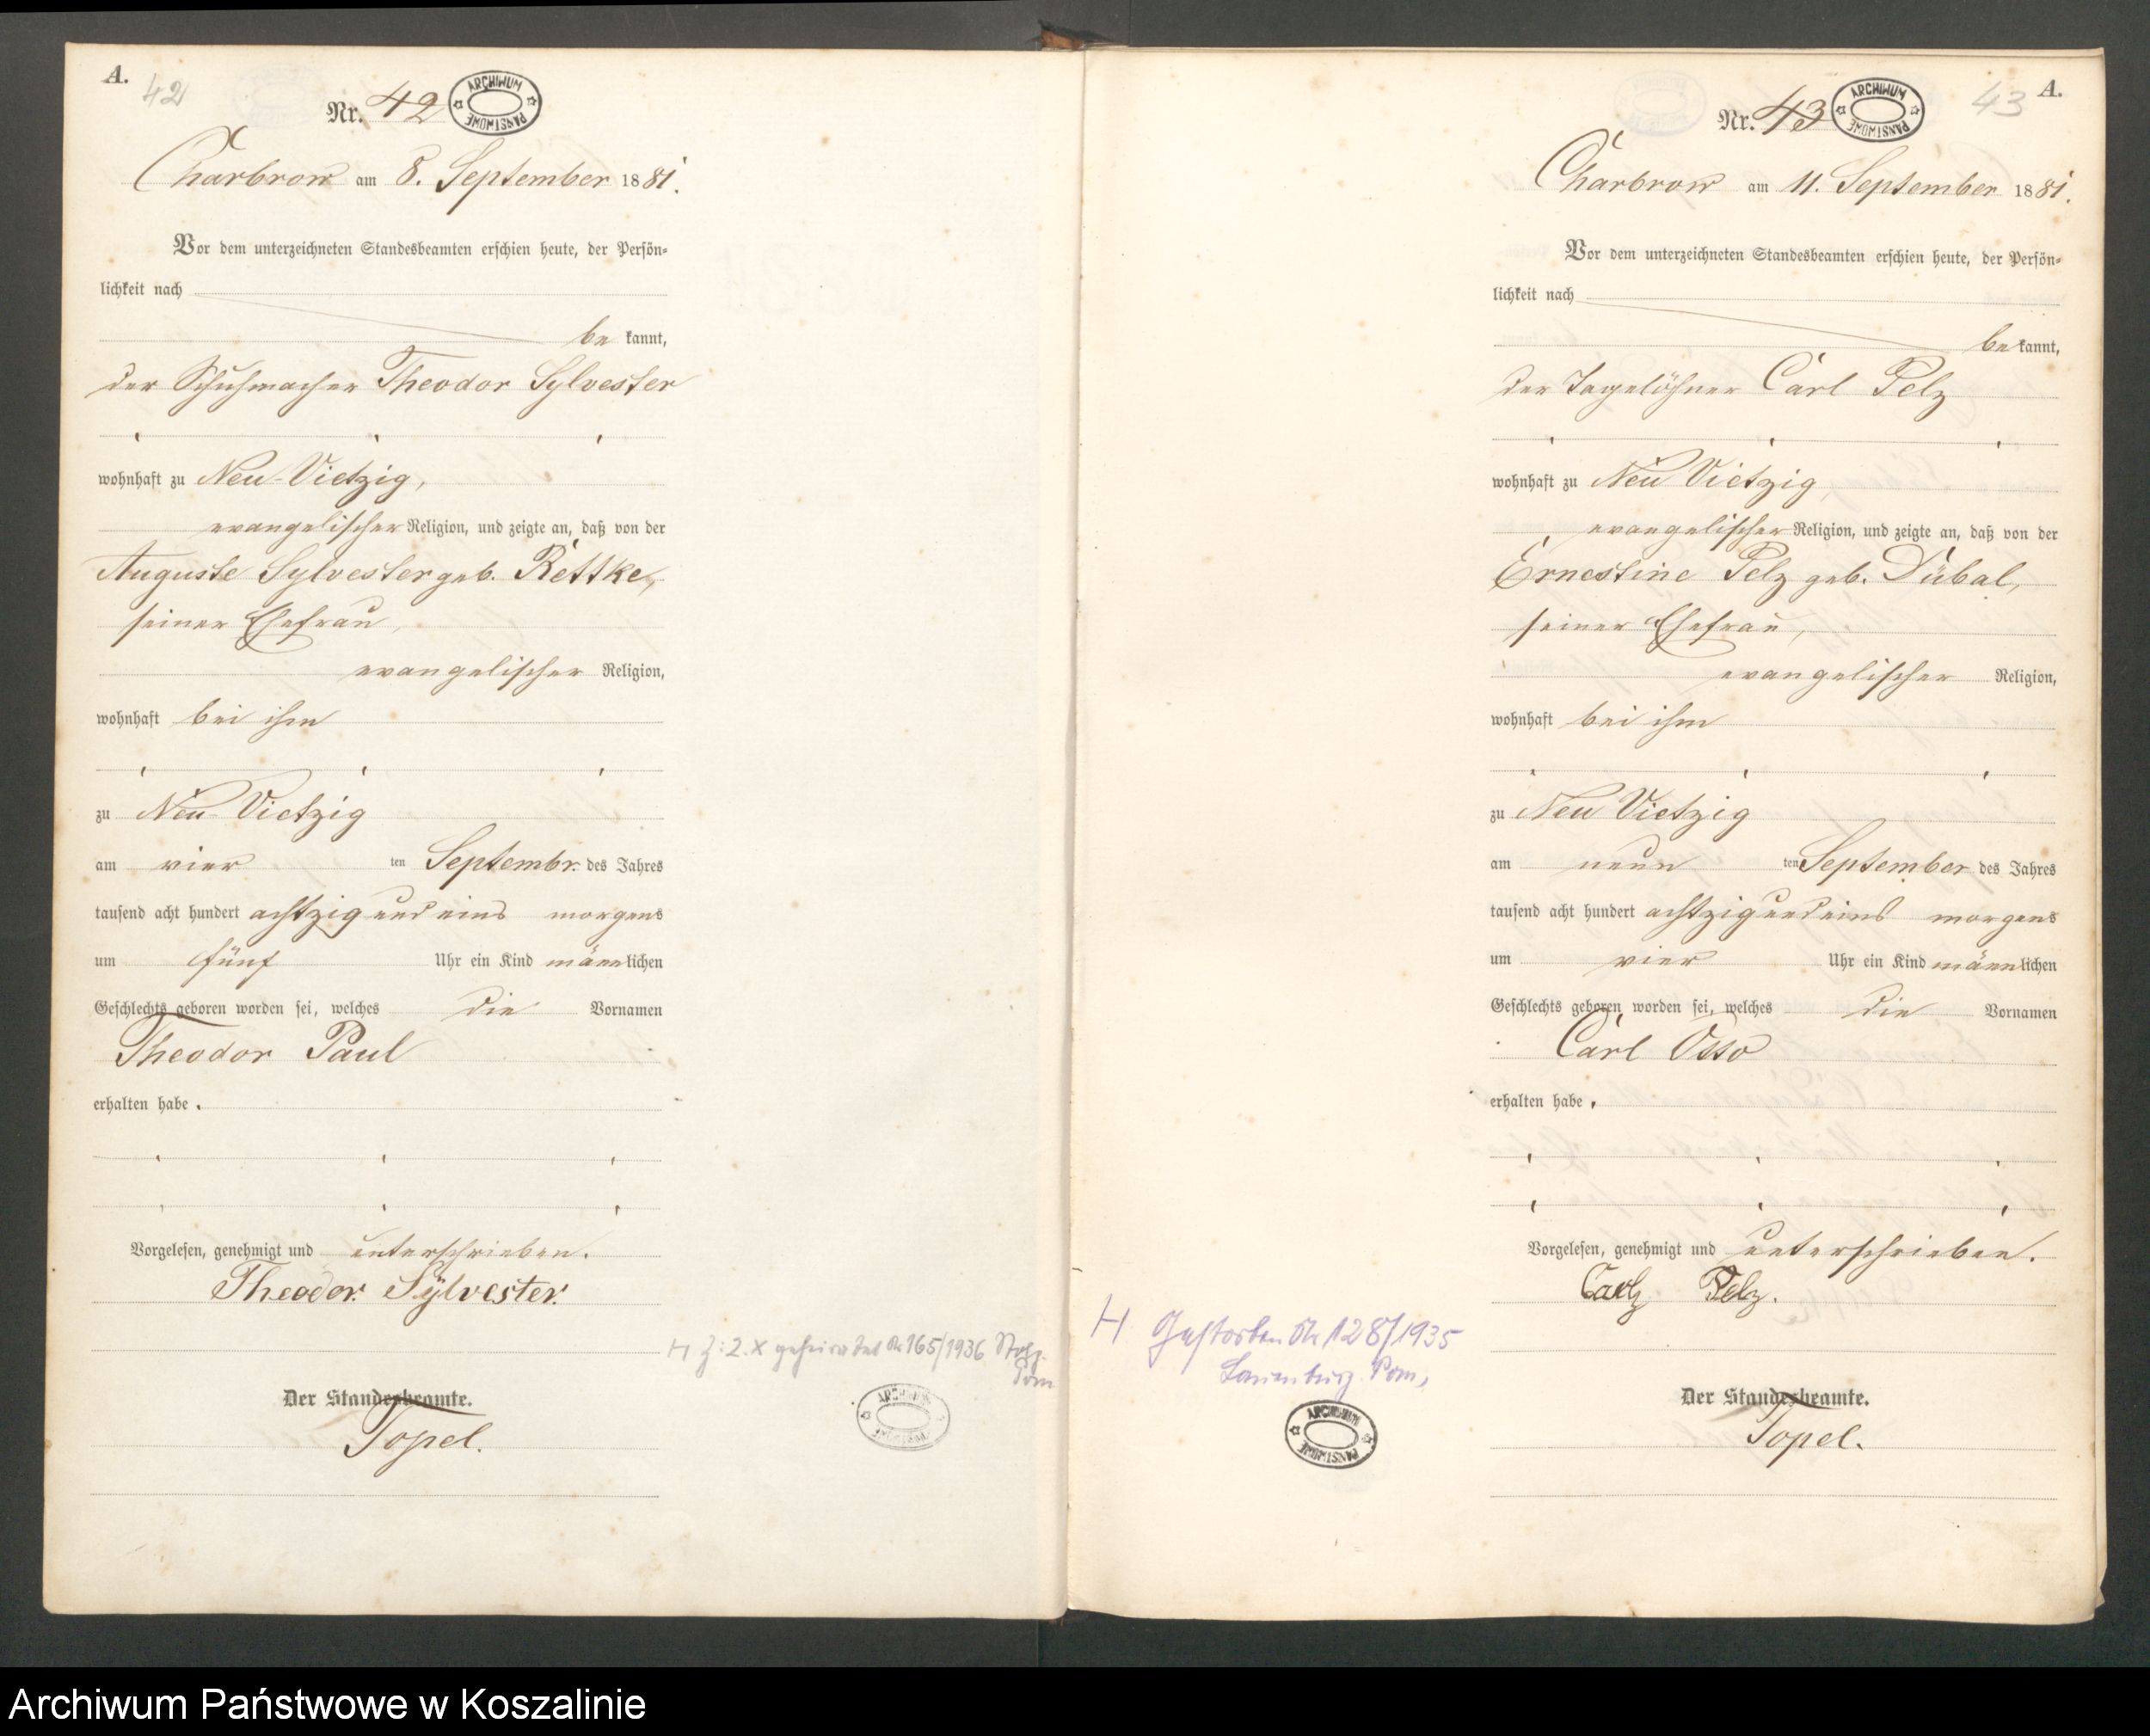 A.
42
Nr. 42
ARCHIWUM PAŃSTWOWE
Charbrow am 8. September 1881.
Vor dem unterzeichneten Standesbeamten erschien heute, der Persön-
lichkeit nach
be kannt,
der Schuhmacher Theodor Sylvester
wohnhaft zu Neu-Vietzig,
evangelischer Religion, und zeigte an, daß von der
Auguste Sylvester geb. Rettke,
seiner Ehefrau,
evangelischer Religion,
wohnhaft bei ihm
zu Neu-Vietzig
am vier ten Septembr. des Jahres
tausend acht hundert achtzig und eins morgens
um fünf Uhr ein Kind männlichen
Geschlechts geboren worden sei, welches die Vornamen
Theodor Paul
erhalten habe.
Vorgelesen, genehmigt und unterschrieben.
Theodor Sylvester.
H z: 2. x geheiratet Nr 165/1936 Stolp
Pom
Der Standesbeamte.
Topel.
ARCHIWUM PAŃSTWOWE
43
A.
Nr. 43
ARCHIWUM PAŃSTWOWE
Charbrow am 11. September 1881.
Vor dem unterzeichneten Standesbeamten erschien heute, der Persön-
lichkeit nach
be kannt,
der Tagelöhner Carl Pelz
wohnhaft zu Neu Vietzig,
evangelischer Religion, und zeigte an, daß von der
Ernestine Pelz geb. Dübal,
seiner Ehefrau,
evangelischer Religion,
wohnhaft bei ihm
zu Neu Vietzig
am neun ten September des Jahres
tausend acht hundert achtzig und eins morgens
um vier Uhr ein Kind männlichen
Geschlechts geboren worden sei, welches die Vornamen
Carl Otto
erhalten habe.
Vorgelesen, genehmigt und unterschrieben.
Carl Pelz.
H Gestorben Nr 128/1935
Lauenburg Pom,
Der Standesbeamte.
Topel.
ARCHIWUM PAŃSTWOWE
Archiwum Państwowe w Koszalinie